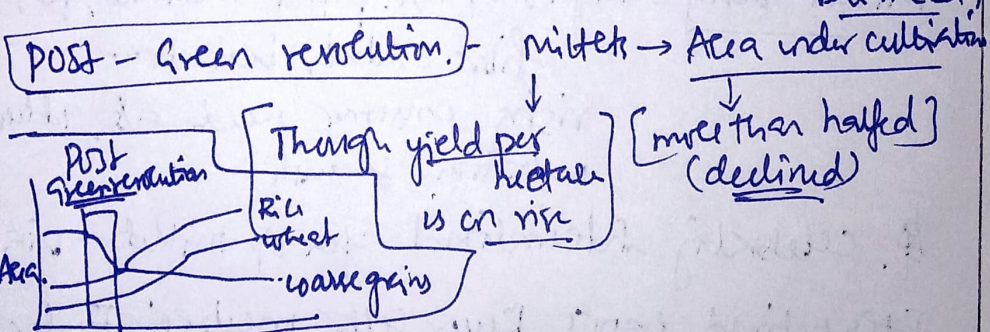 POST - Green revolution. - millets → Area under cultivation
[Though yield per hectare is on rise]
[more than halfed]
(declined)
Post
Green revolution
Area
Rice
wheat
coarse grains